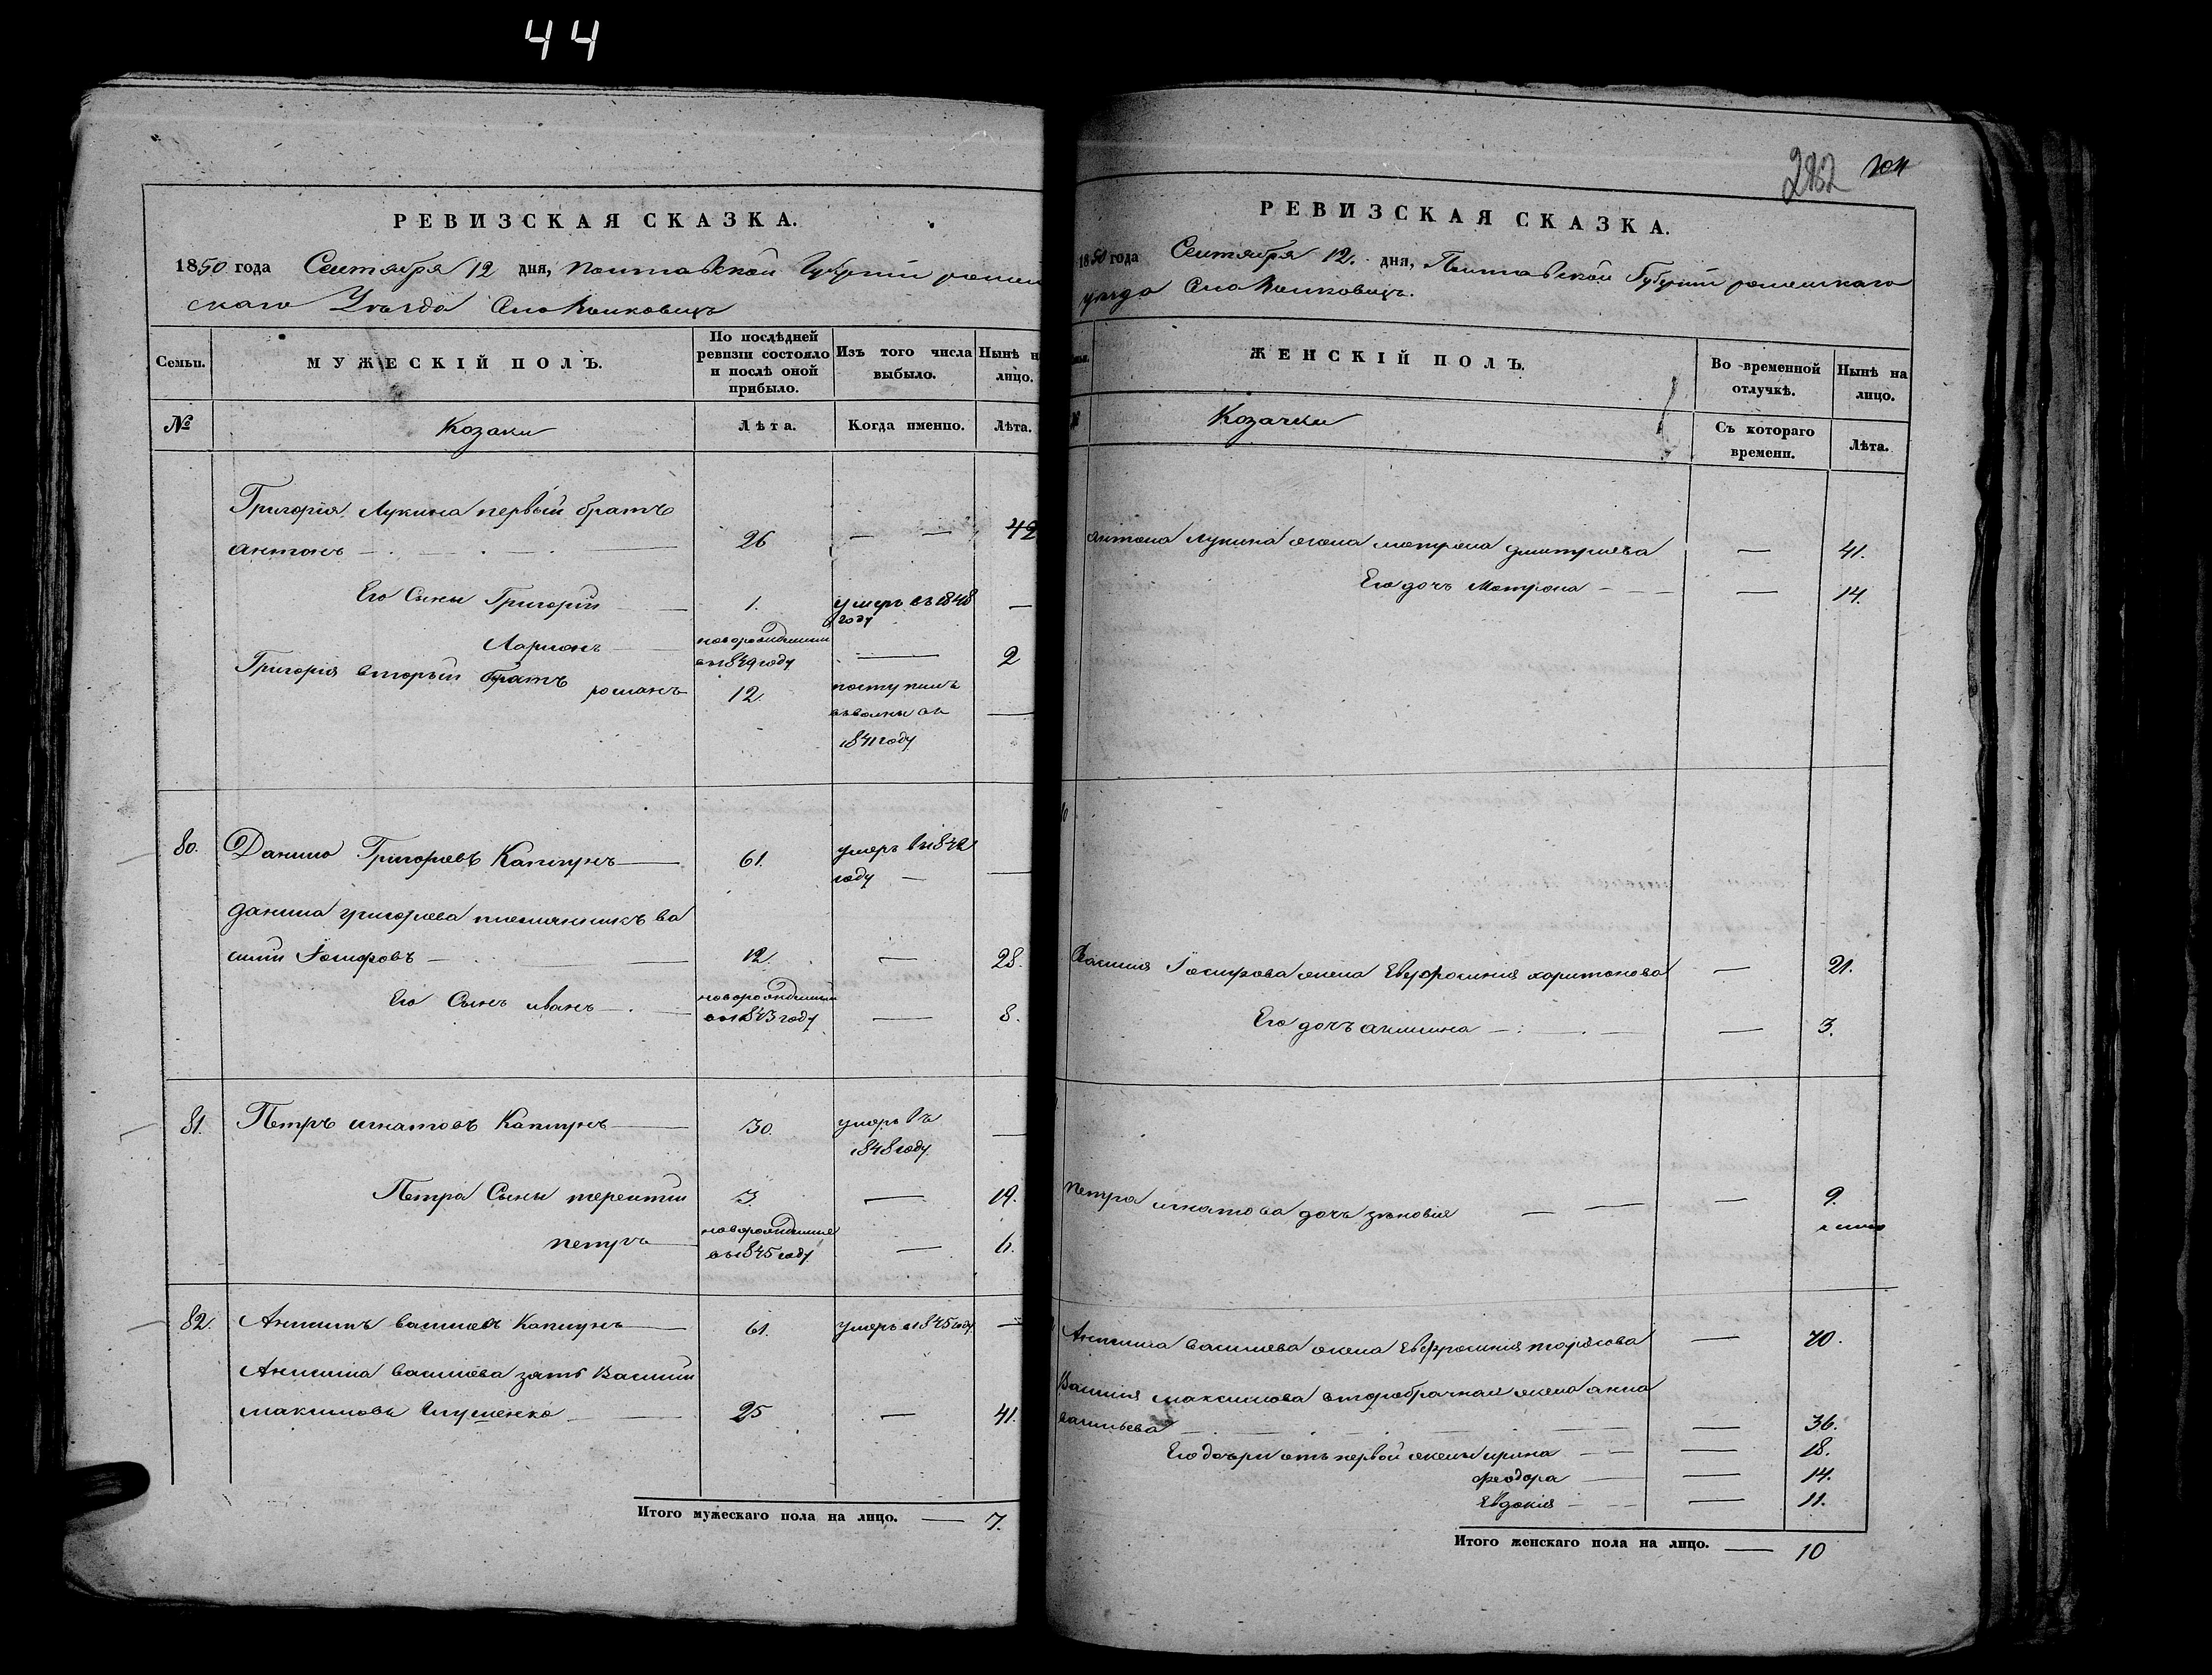 44
РЕВИЗСКАЯ СКАЗКА.
1850 года Сентября 12 дня, Полтавской Губерніи ромен
скаго Уѣзда Села
Семьи.
МУЖЕСКІЙ ПОЛЪ.
По послѣдней ревизіи состояло и послѣ оной прибыло.
Изъ того числа выбыло.
Нынѣ н лицо.
№
Козаки
Лѣта.
Когда именно.
Лѣта.
Григорія Лукина первый братъ
антонъ 26 — — 42
Его Сыны Григорій 1. умеръ въ 1848 году —
Ларионъ новорожденный въ 1849 году — 2
Григорія вторый братъ романъ 12. поступилъ въ 1841 году —
80. Данило Григорьевъ Каплунъ 61. умеръ въ 1842 году —
данила григорьева племянникъ ва
силій 12. — 28.
Его Сынъ иванъ новорожденный въ 1843 году — 8.
81. Петръ игнатовъ Каплунъ 30. умеръ въ 1848 году —
Петра Сыны терентій 3. — 19.
петръ новорожденный въ 1845 году — 6.
82. Анисимъ василевъ Каплунъ 61. умеръ в 1845 году —
Анисима василева зять Василій
максимовъ 25 — 41.
Итого мужескаго пола на лицо. — 7.
282
РЕВИЗСКАЯ СКАЗКА.
1850 года Сентября 12. дня, Полтавской Губерніи роменскаго
уѣзда Села
ЖЕНСКІЙ ПОЛЪ.
Во временной отлучкѣ.
Нынѣ на лицо.
Козачки
Съ котораго времени.
Лѣта.
Антона Лукина жена мотрона дмитриева — 41.
Его дочь Мотрона — 14.
Василія жена Евфросинія харитонова — 21.
Его дочь акилина — 3.
Петра игнатова дочь зѣновия — 9.
Анисима василева жена Евфросинія тарасова — 70.
Василія максимова второбрачная жена анна
васильева — 36.
Его дочери отъ первой жены ирина — 18.
феодора — 14.
Евдокия — 11.
Итого женскаго пола на лицо. — 10